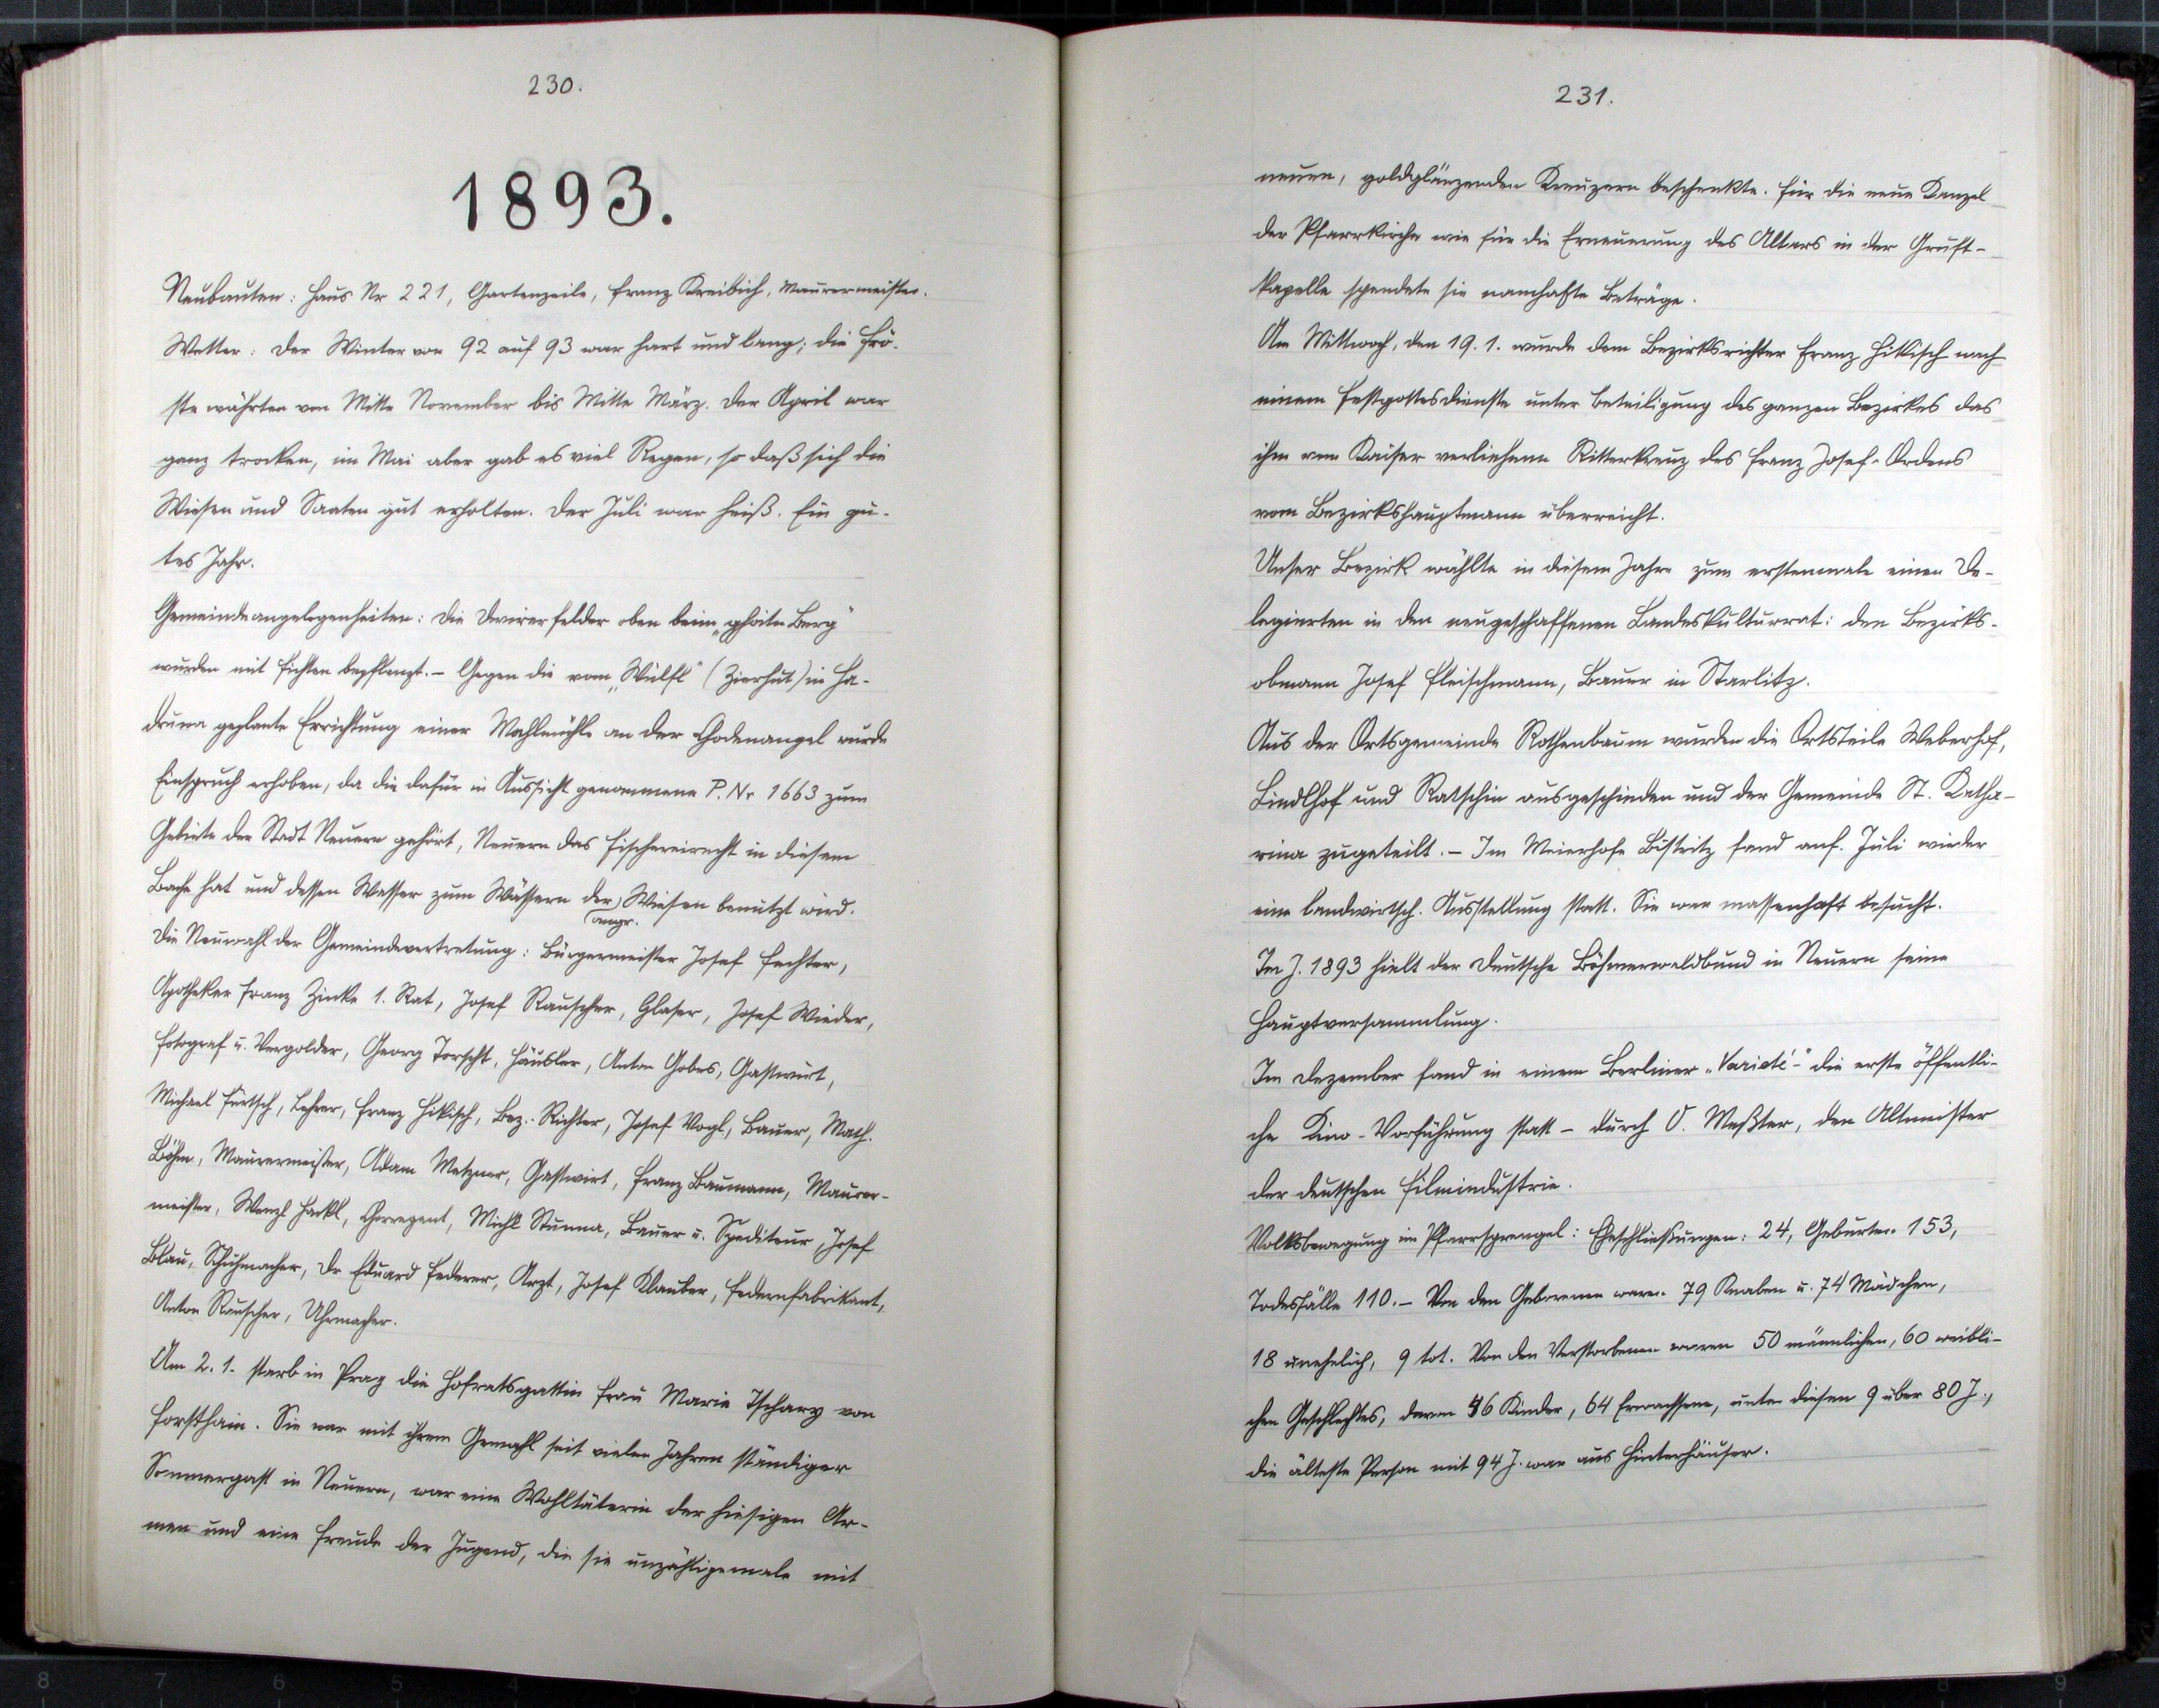 230.
1893.
Neubauten: Haus Nr 221, Gartenzeile, Franz Kreibich, Maurermeister.
Wetter: Der Winter von 92 auf 93 war hart und lang; die Frö-
ste währten von Mitte November bis Mitte März. Der April war
ganz trocken, im Mai aber gab es viel Regen, so daß sich die
Wiesen und Saaten gut erholten. Der Juli war heiß. Ein gu-
tes Jahr.
Gemeindeangelegenheiten: Die felder oben beim Berg"
wurden mit Fichten bepflanzt. – Gegen die vom „Wülfl" (Zierhut) in Ha-
druwa geplante Errichtung einer Mahlmühle an der Chodenangel wurde
Einspruch erhoben, da die dafür in Aussicht genommene P. Nr 1663 zum
Gebiete der Stadt Neuern gehört, Neuern das Fischereirecht in diesem
Bache hat und dessen Wasser zum Wässern der Wiesen benützt wird.
angr.
Die Neuwahl der Gemeindevertretung: Bürgermeister Josef Fechter,
Apotheker Franz Zinke 1. Rat, Josef Rauscher, Glaser, Josef Wieder,
Fotograf u. Vergolder, Georg Torscht, Häusler, Anton Gobes, Gastwirt,
Michael Fürtsch, Lehrer, Franz Hikisch, Bez.-Richter, Josef Vogl, Bauer, Math.
Böhm, Maurermeister, Adam Metzner, Gastwirt, Franz Baumann, Maurer-
meister, Wenzl Hackl, Chorregent, Michl Stunna, Bauer u. Spediteur, Josef
Blau, Schuhmacher, Dr Eduard Federer, Arzt, Josef Klauber, Federnfabrikant,
Anton Rauscher, Uhrmacher.
Am 2. 1. starb in Prag die Hofratsgattin Frau Marie Tschary von
Forsthain. Sie war mit ihrem Gemahl seit vielen Jahren ständiger
Sommergast in Neuern, war eine Wohltäterin der hiesigen Ar-
men und eine Freude der Jugend, die sie unzähligemale mit
231.
neuen, goldglänzenden Kreuzern beschenkte. Für die neue Kanzel
der Pfarrkirche wie für die Erneuerung des Altars in der Gruft-
kapelle spendete sie namhafte Beträge.
Am Mittwoch, den 19. 1. wurde dem Bezirksrichter Franz Hikisch nach
einem Festgottesdienste unter Beteiligung des ganzen Bezirkes das
ihm vom Kaiser verliehene Ritterkreuz des Franz Josef-Ordens
vom Bezirkshauptmann überreicht.
Unser Bezirk wählte in diesem Jahre zum erstenmale einen De-
legierten in den neugeschaffenen Landeskulturrat: den Bezirks-
obmann Josef Fleischmann, Bauer in Starlitz.
Aus der Ortsgemeinde Rothenbaum wurden die Ortsteile Weberhof,
Lindlhof und Ratschin ausgeschieden und der Gemeinde St. Katha-
rina zugeteilt. – Im Meierhofe Bistritz fand anf. Juli wieder
eine landwirtsch. Ausstellung statt. Sie war massenhaft besucht.
Im J. 1893 hielt der Deutsche Böhmerwaldbund in Neuern seine
Hauptversammlung.
Im Dezember fand in einem Berliner „Varieté-" die erste öffentli-
che Kino-Vorführung statt – durch O. Meßter, den Altmeister
der deutschen Filmindustrie.
Volksbewegung im Pfarrsprengel: Eheschließungen: 24, Geburten 153,
Todesfälle 110. – Von den Geborenen waren 79 Knaben u. 74 Mädchen,
18 unehelich, 9 tot. Von den Verstorbenen waren 50 männlichen, 60 weibli-
chen Geschlechtes, davon 46 Kinder, 64 Erwachsene, unter diesen 9 über 80 J.,
die älteste Person mit 94 J. war aus Hinterhäuser.